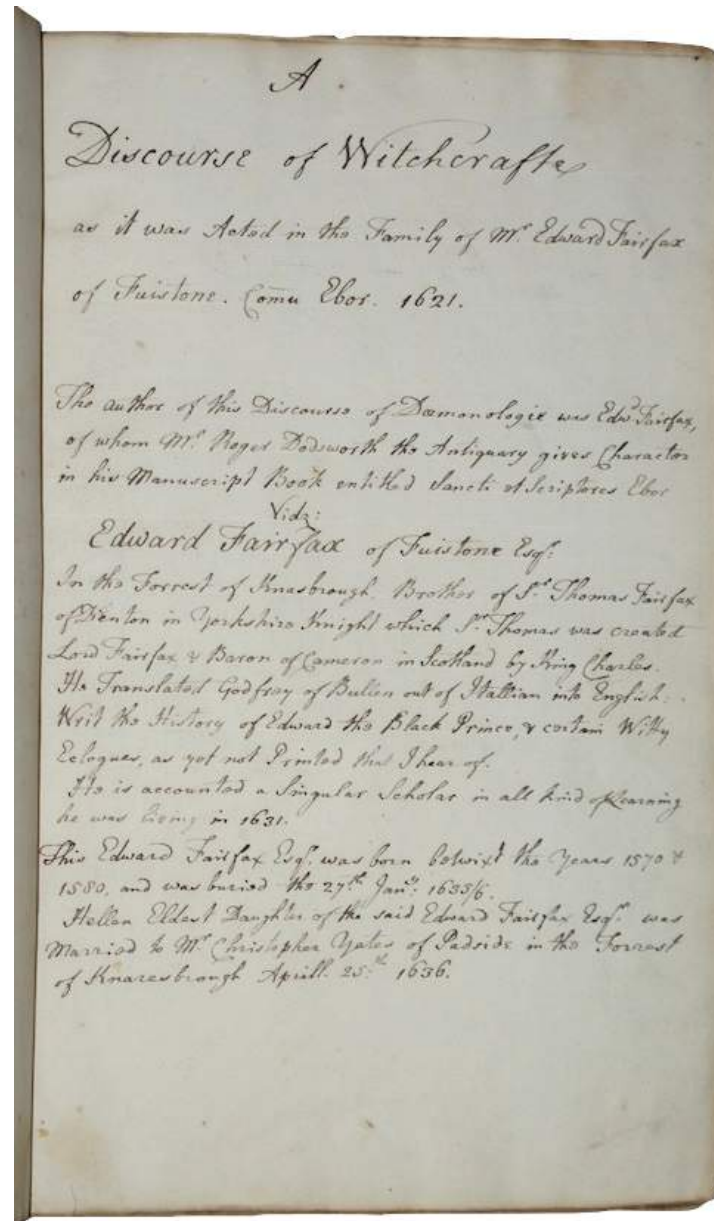 A
Discourse of Witchcrafte
as it was Acted in the Family of Mr. Edward Fairfax
of Fuistone. Comu Ebor. 1621.
The author of this Discourse of Dæmonologie was Edwd. Fairfax,
of whom Mr. Roger Dodsworth the Antiquary gives Character
in his Manuscript Book entitled Sancti et Scriptores Ebor
Vidz:
Edward Fairfax of Fuistone Esqr:
In the Forrest of Knasbrough. Brother of Sr. Thomas Fairfax
of Denton in Yorkshire Knight which Sr. Thomas was created
Lord Fairfax & Baron of Cameron in Scotland by King Charles.
He Translated Godfray of Bullen out of Itallian into English.
Writ the History of Edward the Black Prince, & certain Witty
Eclogues, as yet not Printed that I hear of.
He is accounted a Singular Scholar in all kind of Learning
he was living in 1631.
This Edward Fairfax Esqr. was born betwixt the Years 1570 &
1580, and was buried the 27th. Jany: 1635/6.
Hellen Eldest Daughter of the said Edward Fairfax Esqr. was
Married to Mr. Christopher Yates of Padside in the Forrest
of Knaresbrough Aprill. 25th. 1636.